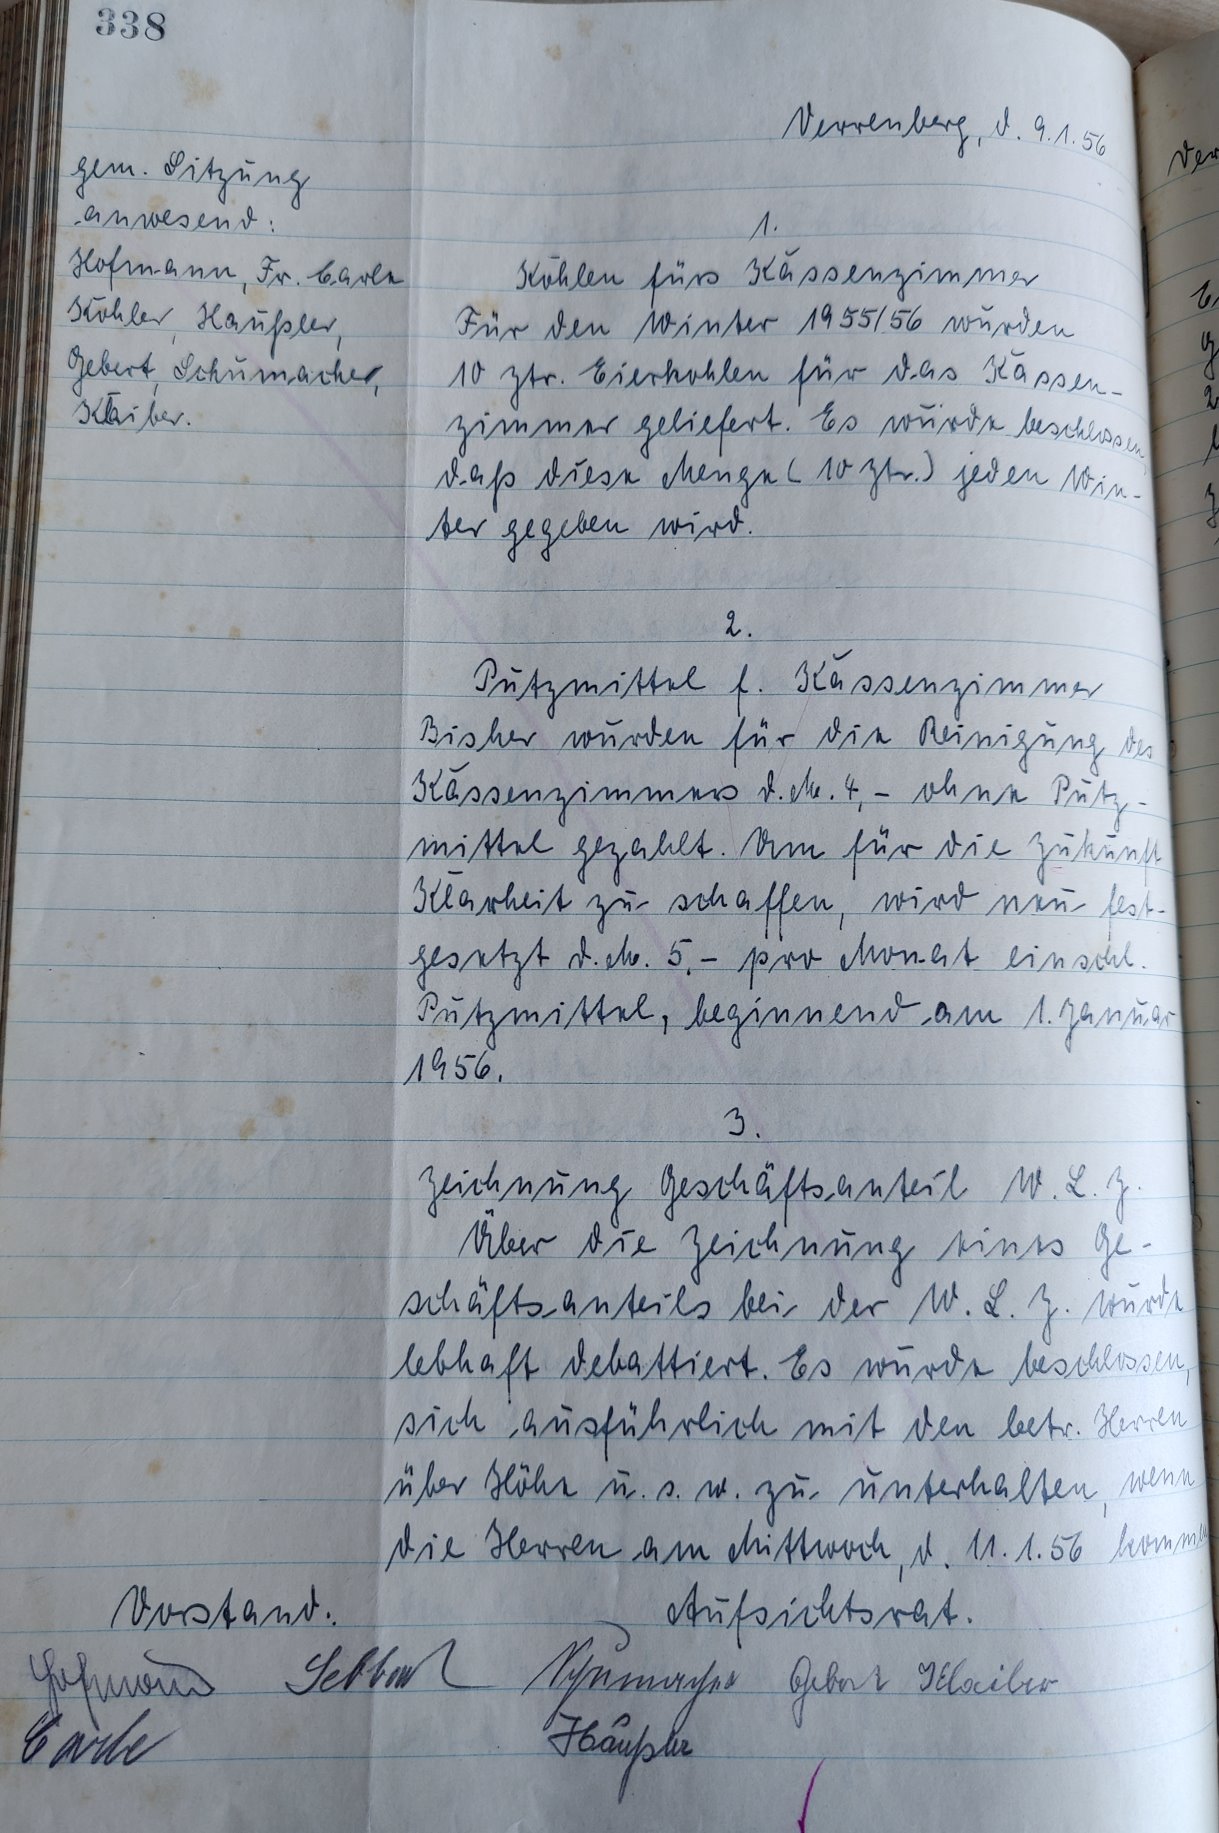 338
Verrenberg, d. 9.1.56
gem. Sitzung
anwesend:
Hofmann, Fr. Carle
Köhler, Häußler,
Gebert, Schumacher,
Klaiber.
1.
Kohlen fürs Kassenzimmer
Für den Winter 1955/56 wurden
10 Ztr. Eierkohlen für das Kassen-
zimmer geliefert. Es wurde beschlossen,
daß diese Menge (10 Ztr.) jeden Win-
ter gegeben wird.
2.
Putzmittel f. Kassenzimmer
Bisher wurden für die Reinigung des
Kassenzimmers d.M. 4,- ohne Putz-
mittel gezahlt. Um für die Zukunft
Klarheit zu schaffen, wird neu fest-
gesetzt d.M. 5,- pro Monat einschl.
Putzmittel, beginnend am 1. Januar
1956.
3.
Zeichnung Geschäftsanteil W.L.Z.
Über die Zeichnung eines Ge-
schäftsanteils bei der W.L.Z. wurde
lebhaft debattiert. Es wurde beschlossen,
sich ausführlich mit den betr. Herren
über Höhe u.s.w. zu unterhalten, wenn
die Herren am Mittwoch, d. 11.1.56 kommen
Vorstand: Aufsichtsrat.
Hofmann Schumacher Gebert Klaiber
Carle Häußler